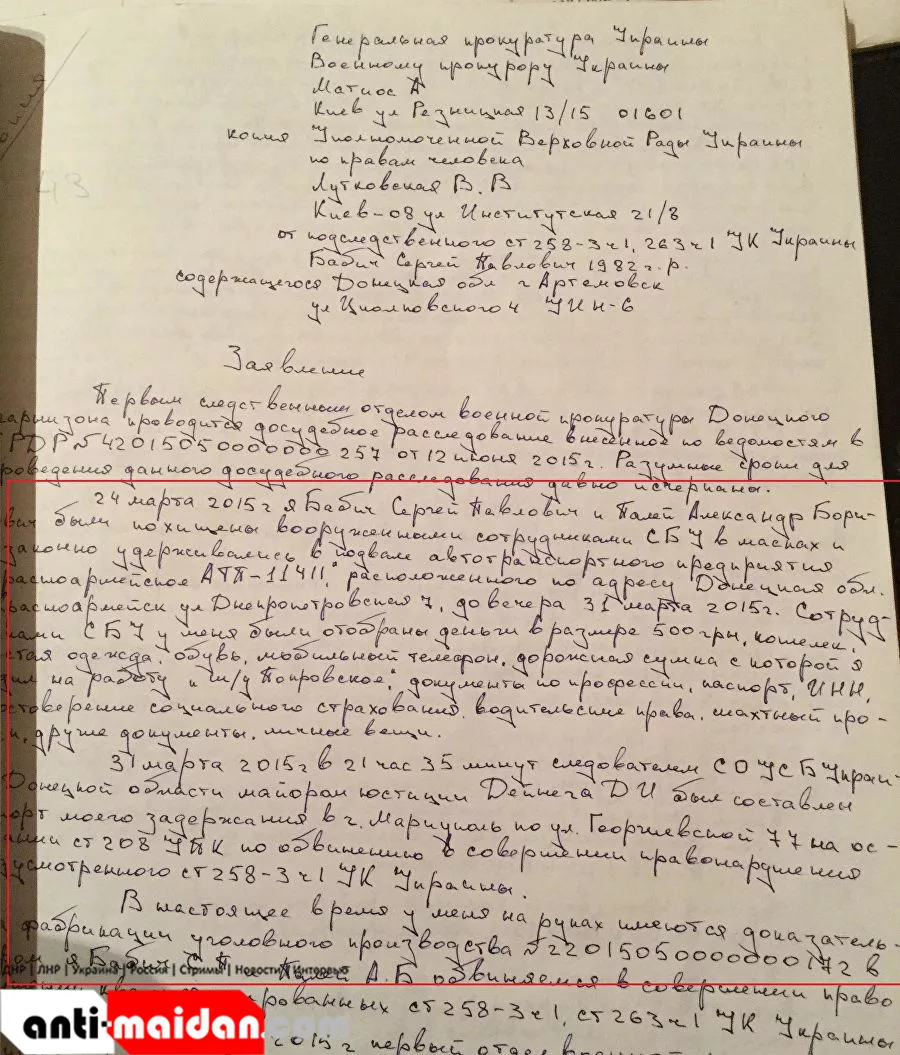 Генеральная прокуратура Украины
Военному прокурору Украины
Матиос А
Киев ул Резницкая 13/15 01601
копия Уполномоченной Верховной Рады Украины
по правам человека
Лутковская В.В
Киев-08 ул Институтская 21/8
43
от подследственного ст 258-3 ч1, 263 ч1 УК Украины
Бабич Сергей Павлович 1982 г.р.
содержащегося Донецкая обл г Артемовск
ул Циолковского 4 УИН-6
Заявление
Первым следственным отделом военной прокуратуры Донецкого
гарнизона проводится досудебное расследование внесенное по ведомостям в
РДР №42015050000000257 от 12 июня 2015г. Разумные сроки для
роведения данного досудебного расследования давно исчерпаны.
24 марта 2015г я Бабич Сергей Павлович и Палей Александр Бори-
вич были похищены вооруженными сотрудниками СБУ в масках и
законно удерживались в подвале автотранспортного предприятия
расноармейское АТП-11411," расположенного по адресу Донецкая обл.
расноармейск ул Днепропетровская 7, до вечера 31 марта 2015г. Сотруд-
ками СБУ у меня были отобраны деньги в размере 500 грн, кошелек,
стая одежда, обувь, мобильный телефон, дорожная сумка с которой я
дил на работу ш/у Покровское," документы по профессии, паспорт, ИНН,
стоверение социального страхования, водительские права, шахтный про-
к, другие документы, личные вещи.
31 марта 2015г в 21 час 35 минут следователем СО УСБ Украи-
Донецкой области майором юстиции Дейнега ДИ был составлен
порт моего задержания в г. Мариуполь по ул. Георгиевской 77 на ос-
ании ст 208 УПК по обвинению в совершении правонарушения
дусмотренного ст 258-3 ч1 УК Украины.
В настоящее время у меня на руках имеются доказатель-
фабрикации уголовного производства №22015050000000172 в
ром я Бабич С П Палей А.Б обвиняемся в совершении право
ДНР | ЛНР | Украина | Россия | Стримы | Новости | Интервью
ированных ст 258-3 ч1, ст 263 ч1 УК Украины
anti-maidan.com
2015 г первый отдел